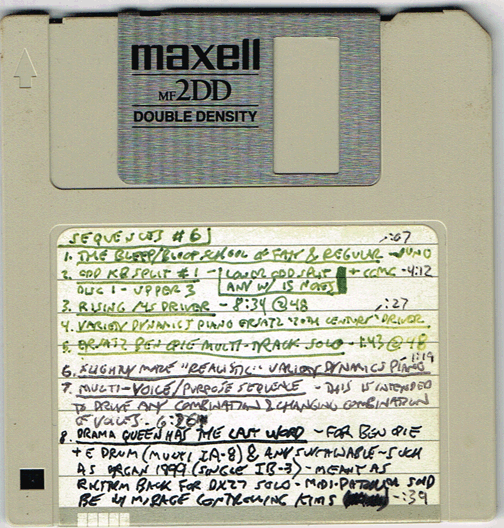 maxell
MF2DD
DOUBLE DENSITY
SEQUENCES #6
1:07
1. THE BLEEP/BLOOP SCHOOL OF FAY & REGULAR - JUNO
2. ODD KB SPLIT #1 - LOWER ODD SPLIT + CCMC - 4:12
DISC 1 - UPPER 3 ANY W/ 15 NOTES
3. RISING MS DRIVER - 8:34 @ 48 1:27
4. VARIETY DYNAMICS PIANO ERSATZ "20TH CENTURY" DRIVER
5. ERSATZ BEN OPIE MULTI-TRACK SOLO - 1:43 @ 48
1:19
6. SLIGHTLY MORE "REALISTIC" VARIETY DYNAMICS PIANO
7. MULTI-VOICE/PURPOSE SEQUENCE - THIS IS INTENDED
TO DRIVE ANY COMBINATION & CHANGING COMBINATION
OF VOICES -
8. DRAMA QUEEN HAS THE LAST WORD - FOR BEN OPIE
+ E DRUM (MULTI IA-8) & ANY SUSTAINABLE - SUCH
AS ORGAN 1999 (SINGLE IB-3) - MEANT AS
BACK FOR DX27 SOLO - MIDI-PATCH
BE W/ MIRAGE CONTROLLING - :39